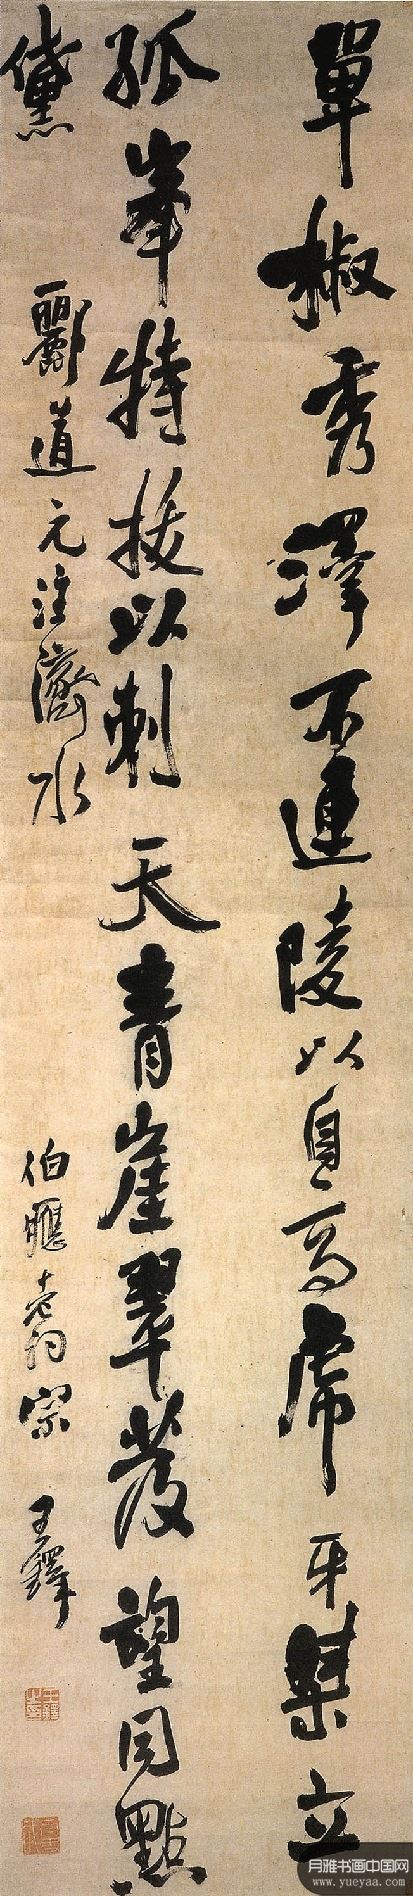 單椒秀澤不連陵以自高虎牙桀立
孤峯特拔以刺天青崖翠發望同點
黛 酈道元注濟水 伯應老詞宗 王鐸
月雅书画中国网
www.yueyaa.com